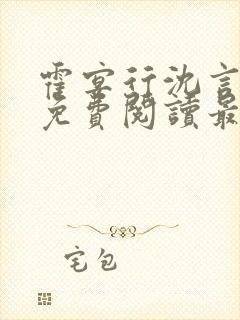 霍宴行沈言
免費閱讀最
宅包